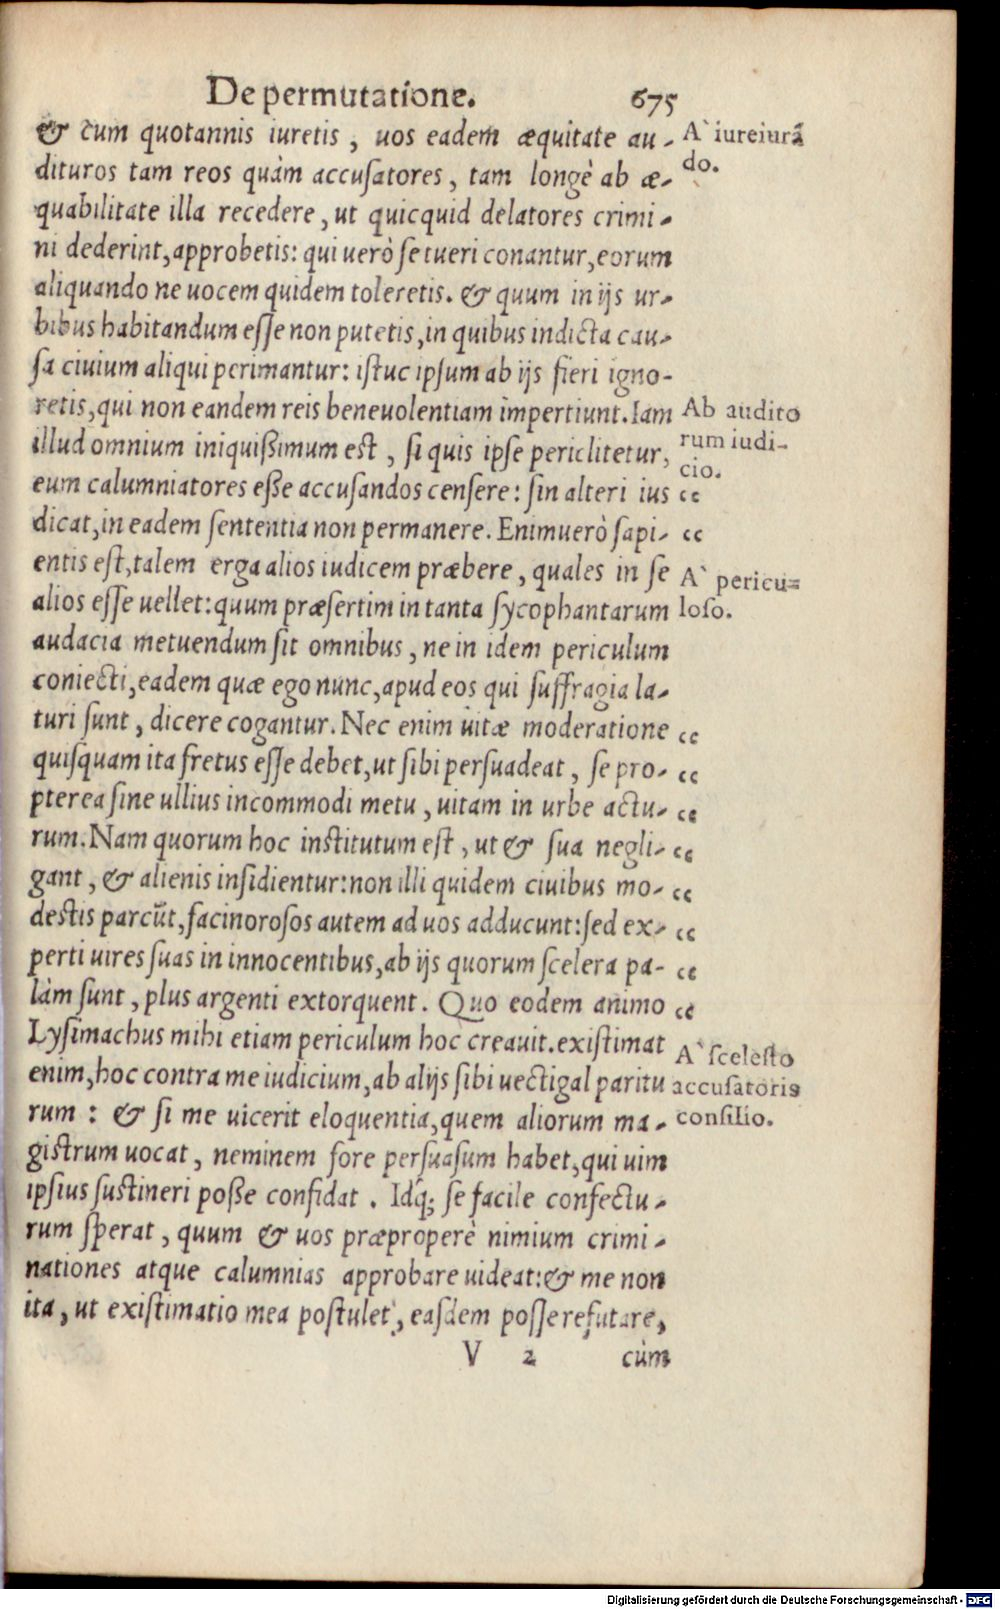 De permutatione. 675
& cùm quotannis iuretis, uos eadem æquitate au-
dituros tam reos quàm accusatores, tam longè ab æ-
quabilitate illa recedere, ut quicquid delatores crimi-
ni dederint, approbetis: qui uerò se tueri conantur, eorum
aliquando ne uocem quidem toleretis. & quum in ijs ur-
bibus habitandum esse non putetis, in quibus indicta cau-
sa ciuium aliqui perimantur: istuc ipsum ab ijs fieri igno-
retis, qui non eandem reis beneuolentiam impertiunt. Iam
illud omnium iniquißimum est, si quis ipse periclitetur,
eum calumniatores eße accusandos censere: sin alteri ius
dicat, in eadem sententia non permanere. Enimuerò sapi-
entis est, talem erga alios iudicem præbere, quales in se
alios esse uellet: quum præsertim in tanta sycophantarum
audacia metuendum sit omnibus, ne in idem periculum
coniecti, eadem quæ ego nunc, apud eos qui suffragia la-
turi sunt, dicere cogantur. Nec enim uitæ moderatione
quisquam ita fretus esse debet, ut sibi persuadeat, se pro-
pterea sine ullius incommodi metu, uitam in urbe actu-
rum. Nam quorum hoc institutum est, ut & sua negli-
gant, & alienis insidientur: non illi quidem ciuibus mo-
destis parcũt, facinorosos autem ad uos adducunt: sed ex-
perti uires suas in innocentibus, ab ijs quorum scelera pa-
làm sunt, plus argenti extorquent. Quo eodem animo
Lysimachus mihi etiam periculum hoc creauit. existimat
enim, hoc contra me iudicium, ab alijs sibi uectigal paritu
rum: & si me uicerit eloquentia, quem aliorum ma-
gistrum uocat, neminem fore persuasum habet, qui uim
ipsius sustineri poße confidat. Idq́; se facile confectu-
rum sperat, quum & uos præproperè nimium crimi-
nationes atque calumnias approbare uideat: & me non
ita, ut existimatio mea postulet, easdem posse refutare,
V 2 cùm
A` iureiurã
do.
Ab audito
rum iudi-
cio.
“
“
A` pericu=
loso.
“
“
“
“
“
“
“
“
A` scelesto
accusatoris
consilio.
Digitalisierung gefördert durch die Deutsche Forschungsgemeinschaft - DFG